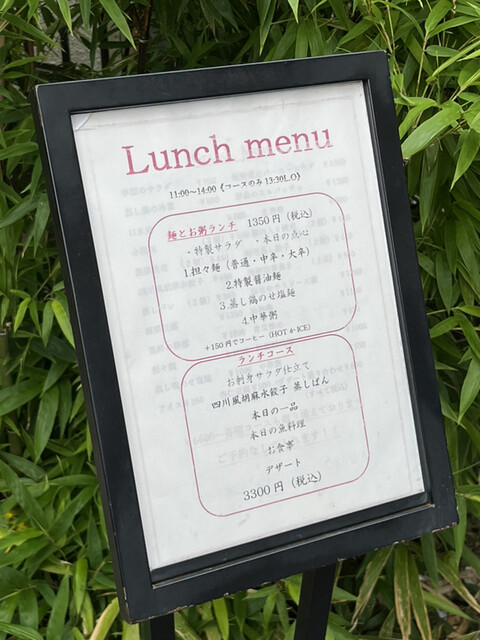 Lunch menu
11:00～14:00《コースのみ13:30L.O》
麺とお粥ランチ 1350円(税込)
・特製サラダ ・本日の点心
1.担々麺(普通・中辛・大辛)
2.特製醤油麺
3.蒸し鶏のせ塩麺
4.中華粥
+150円でコーヒー(HOT か ICE)
ランチコース
お刺身サラダ仕立て
四川風胡麻水餃子 蒸しぱん
本日の一品
本日の魚料理
お食事
デザート
3300円(税込)